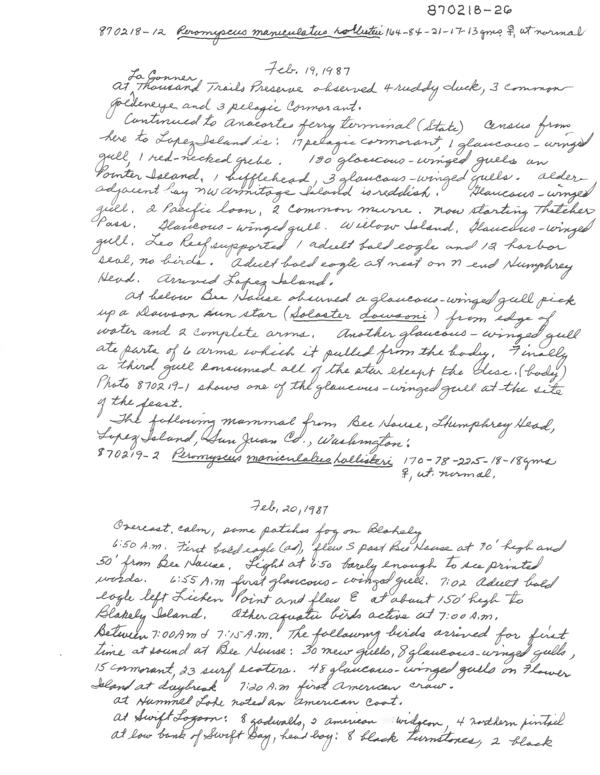 870218-26
870218-12 Peromyscus maniculatus hollisteri 164-84-21-17-13gms ♀, ut normal
Feb. 19, 1987
La Conner
At Thousand Trails Preserve observed 4 ruddy duck, 3 common
goldeneye and 3 pelagic cormorant.
Continued to Anacortes ferry terminal (State) Census from
here to Lopez Island is: 17 pelagic cormorant, 1 glaucous-winged
gull, 1 red-necked grebe. 130 glaucous-winged gulls on
Pointer Island, 1 bufflehead, 3 glaucous-winged gulls. Alder
adjacent to NW Armitage Island is reddish. Glaucous-winged
gull. 2 Pacific loon, 2 common murre. Now starting Thatcher
Pass. Glaucous-winged gull. Willow Island, Glaucous-winged
gull. Leo Reef supported 1 adult bald eagle and 12 harbor
seal, no birds. Adult bald eagle at nest on N end Humphrey
Head. Arrived Lopez Island.
At below Bee House observed a glaucous-winged gull pick
up a Dawson sun star (Solaster dawsoni) from edge of
water and 2 complete arms. Another glaucous-winged gull
ate parts of 6 arms which it pulled from the body. Finally
a third gull consumed all of the star except the disc. (body)
Photo 870219-1 shows one of the glaucous-winged gull at the site
of the feast.
The following mammal from Bee House, Humphrey Head,
Lopez Island, San Juan Co., Washington:
870219-2 Peromyscus maniculatus hollisteri 170-78-22.5-18-18gms
♀, ut. normal.
Feb, 20, 1987
Overcast, calm, some patches fog on Blakely
6:50 A.M. First bald eagle (ad), flew S past Bee House at 70' high and
50' from Bee House. Light at 6:50 barely enough to see printed
words. 6:55 A.M first glaucous-winged gull. 7:02 Adult bald
eagle left Lichen Point and flew E at about 150' high to
Blakely Island. Other aquatic birds active at 7:00 A.M.
Between 7:00AM & 7:15 A.M. The following birds arrived for first
time at sound at Bee House: 30 mew gulls, 8 glaucous-winged gulls,
15 cormorant, 23 surf scoters. 48 glaucous-winged gulls on Flower
Island at daybreak 7:20 A.M first American crow.
At Hummel Lake noted an American coot.
At Swift Lagoon: 8 gadwalls, 2 American widgeon, 4 northern pintail
at low bank of Swift Bay, head bay: 8 black turnstones, 2 black